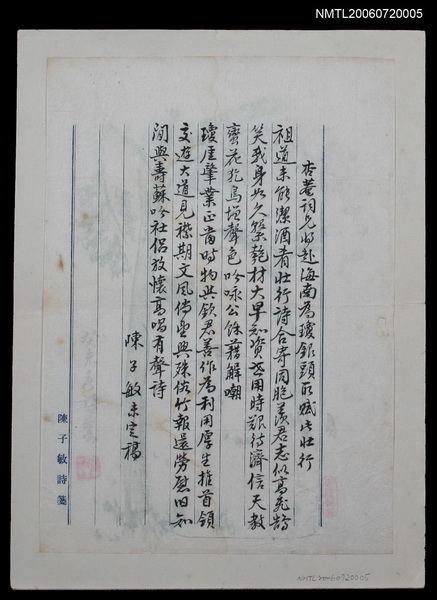 NMTL20060720005
杏菴詞兄將赴海南為瓊銀頭取賦此壯行
祖道未能潔酒肴壯行詩合寄同胞羨君志似高飛鵠
笑我身如久繫匏材大早知資世用時艱待濟信天教
蠻花犵鳥增聲色吟咏公餘藉解嘲
瓊厓肇業正當時物與欽君善作為利用厚生推首領
交遊大道見襟期文風倘與殊俗竹報還勞慰旧知
間與壽蘇吟社侶放懷高唱有聲詩
陳子敏未定稿
陳子敏詩箋
NMTL20060720005